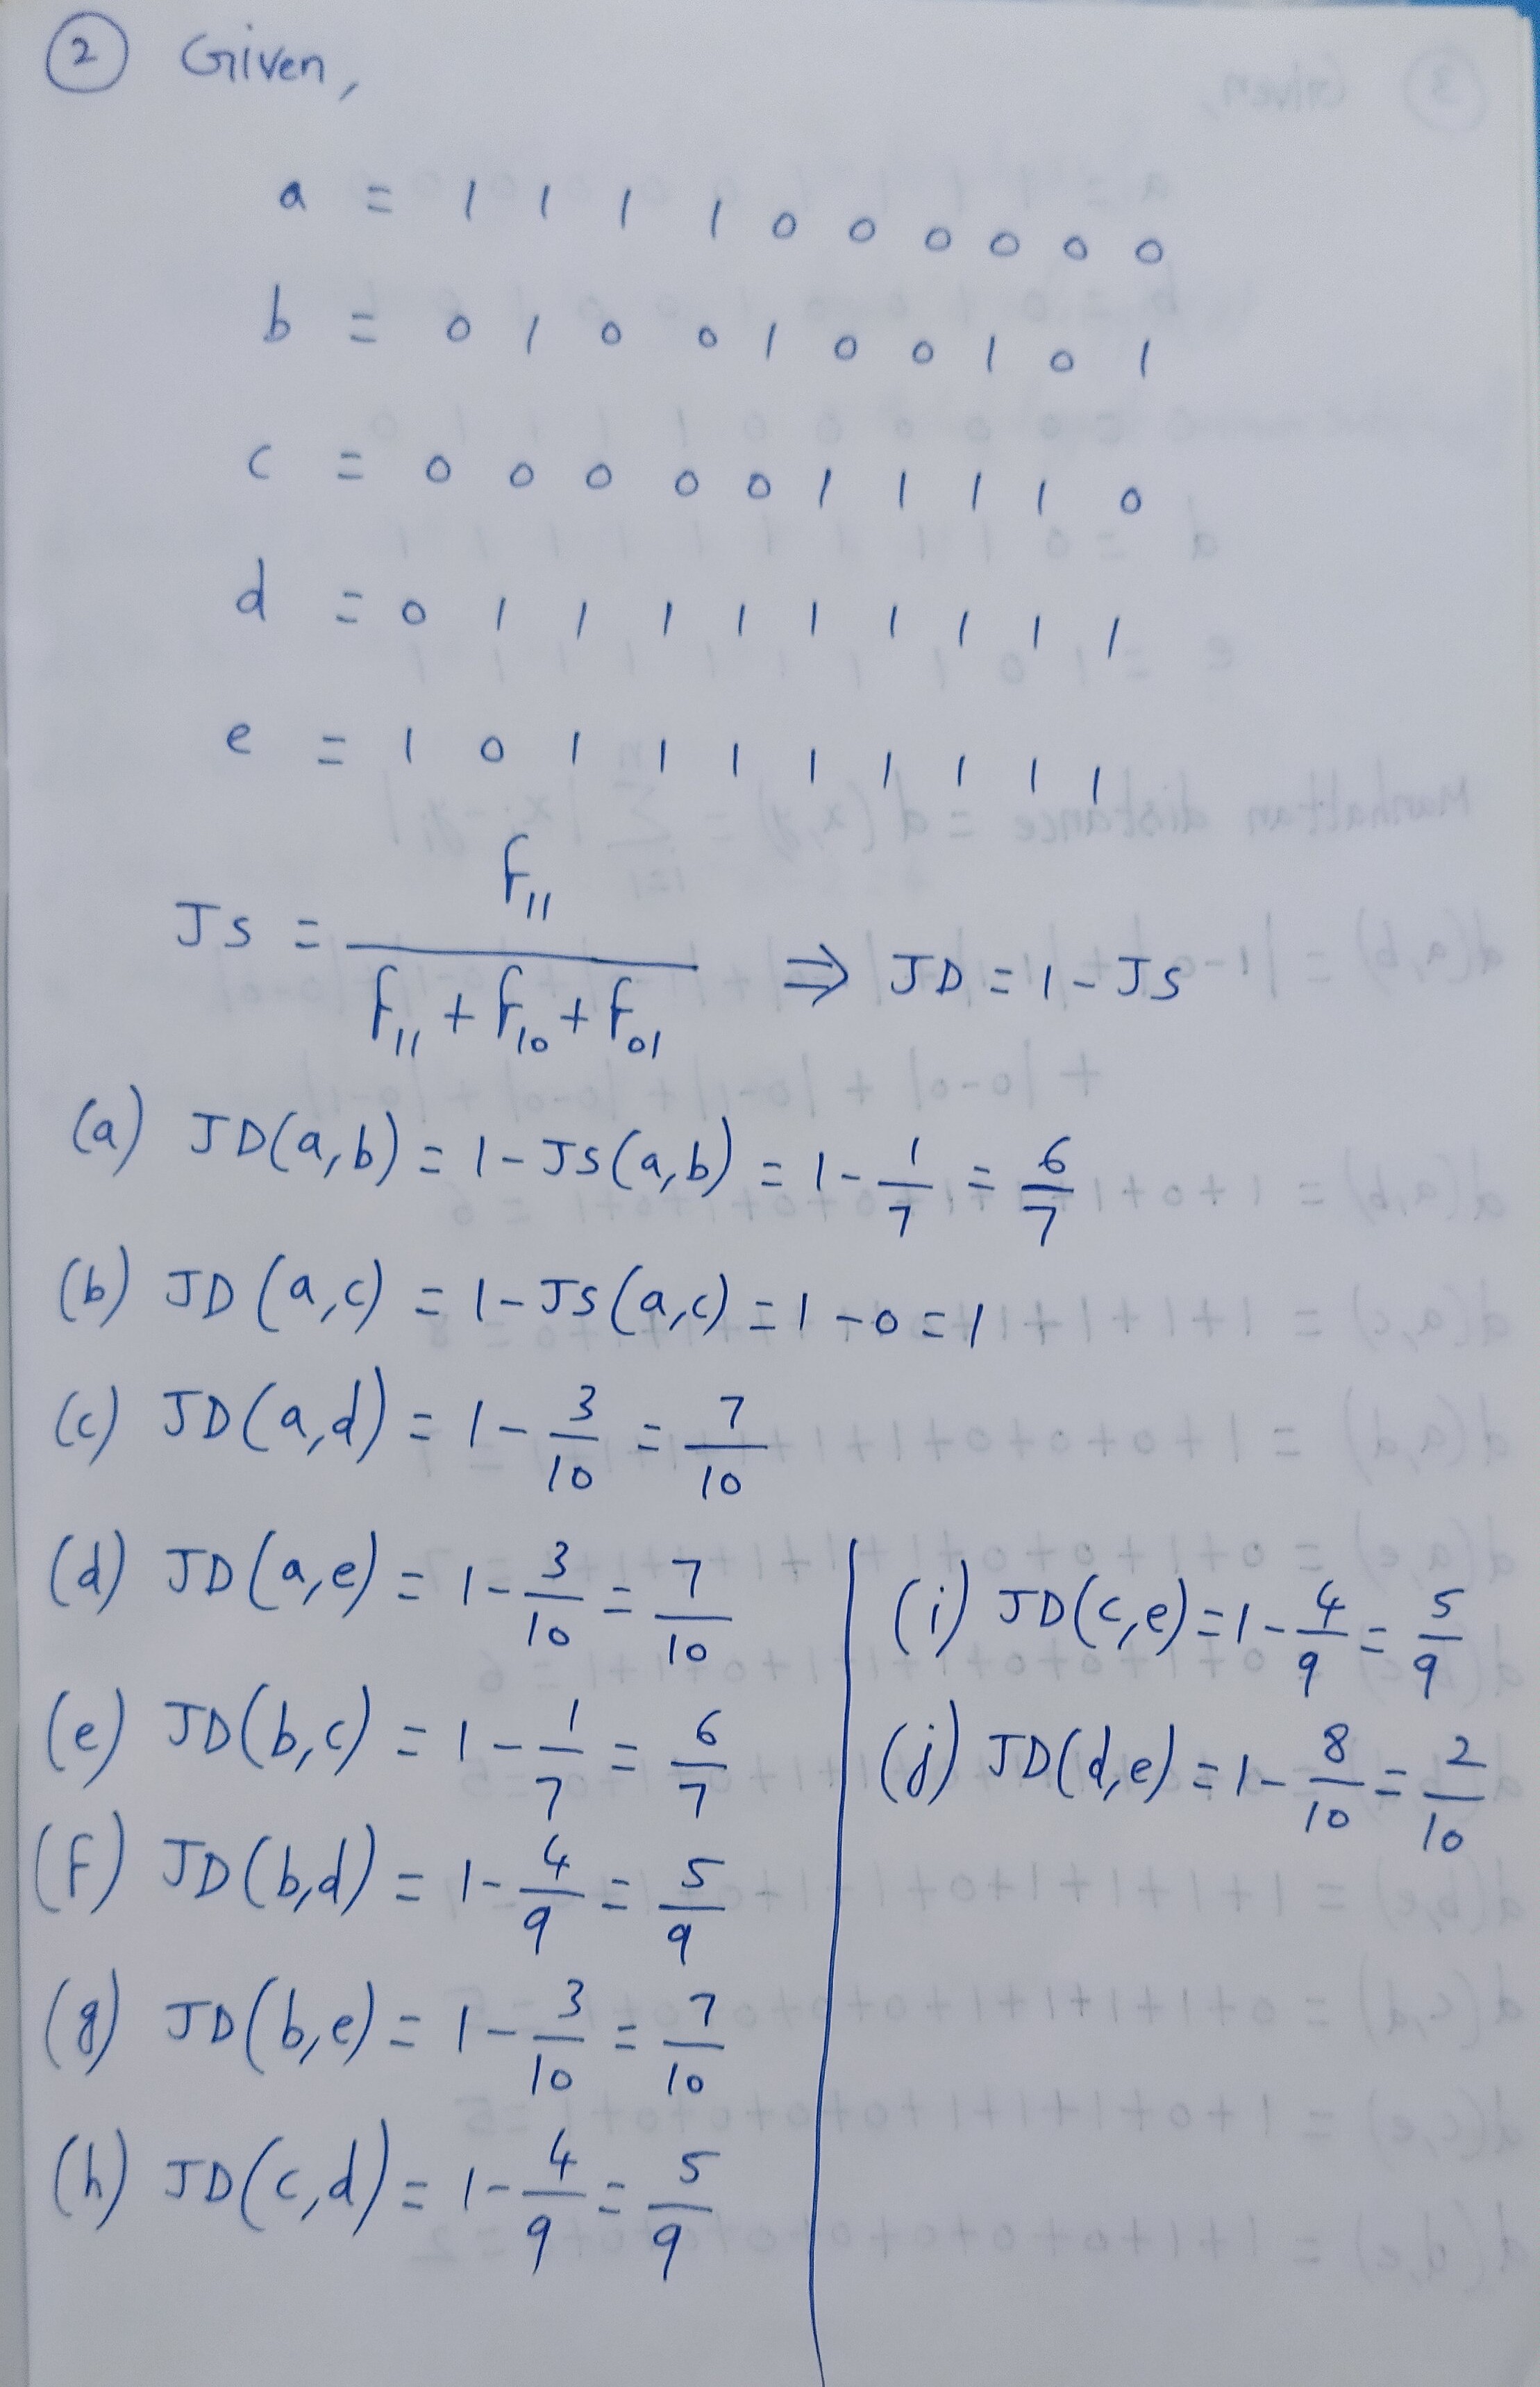 ② Given,
a = 1 1 1 1 0 0 0 0 0 0
b = 0 1 0 0 1 0 0 1 0 1
c = 0 0 0 0 0 1 1 1 1 0
d = 0 1 1 1 1 1 1 1 1 1
e = 1 0 1 1 1 1 1 1 1 1
JS = f₁₁ / (f₁₁ + f₁₀ + f₀₁) ⇒ JD = 1 - JS
(a) JD(a,b) = 1 - JS(a,b) = 1 - 1/7 = 6/7
(b) JD(a,c) = 1 - JS(a,c) = 1 - 0 = 1
(c) JD(a,d) = 1 - 3/10 = 7/10
(d) JD(a,e) = 1 - 3/10 = 7/10
(e) JD(b,c) = 1 - 1/7 = 6/7
(f) JD(b,d) = 1 - 4/9 = 5/9
(g) JD(b,e) = 1 - 3/10 = 7/10
(h) JD(c,d) = 1 - 4/9 = 5/9
(i) JD(c,e) = 1 - 4/9 = 5/9
(j) JD(d,e) = 1 - 8/10 = 2/10